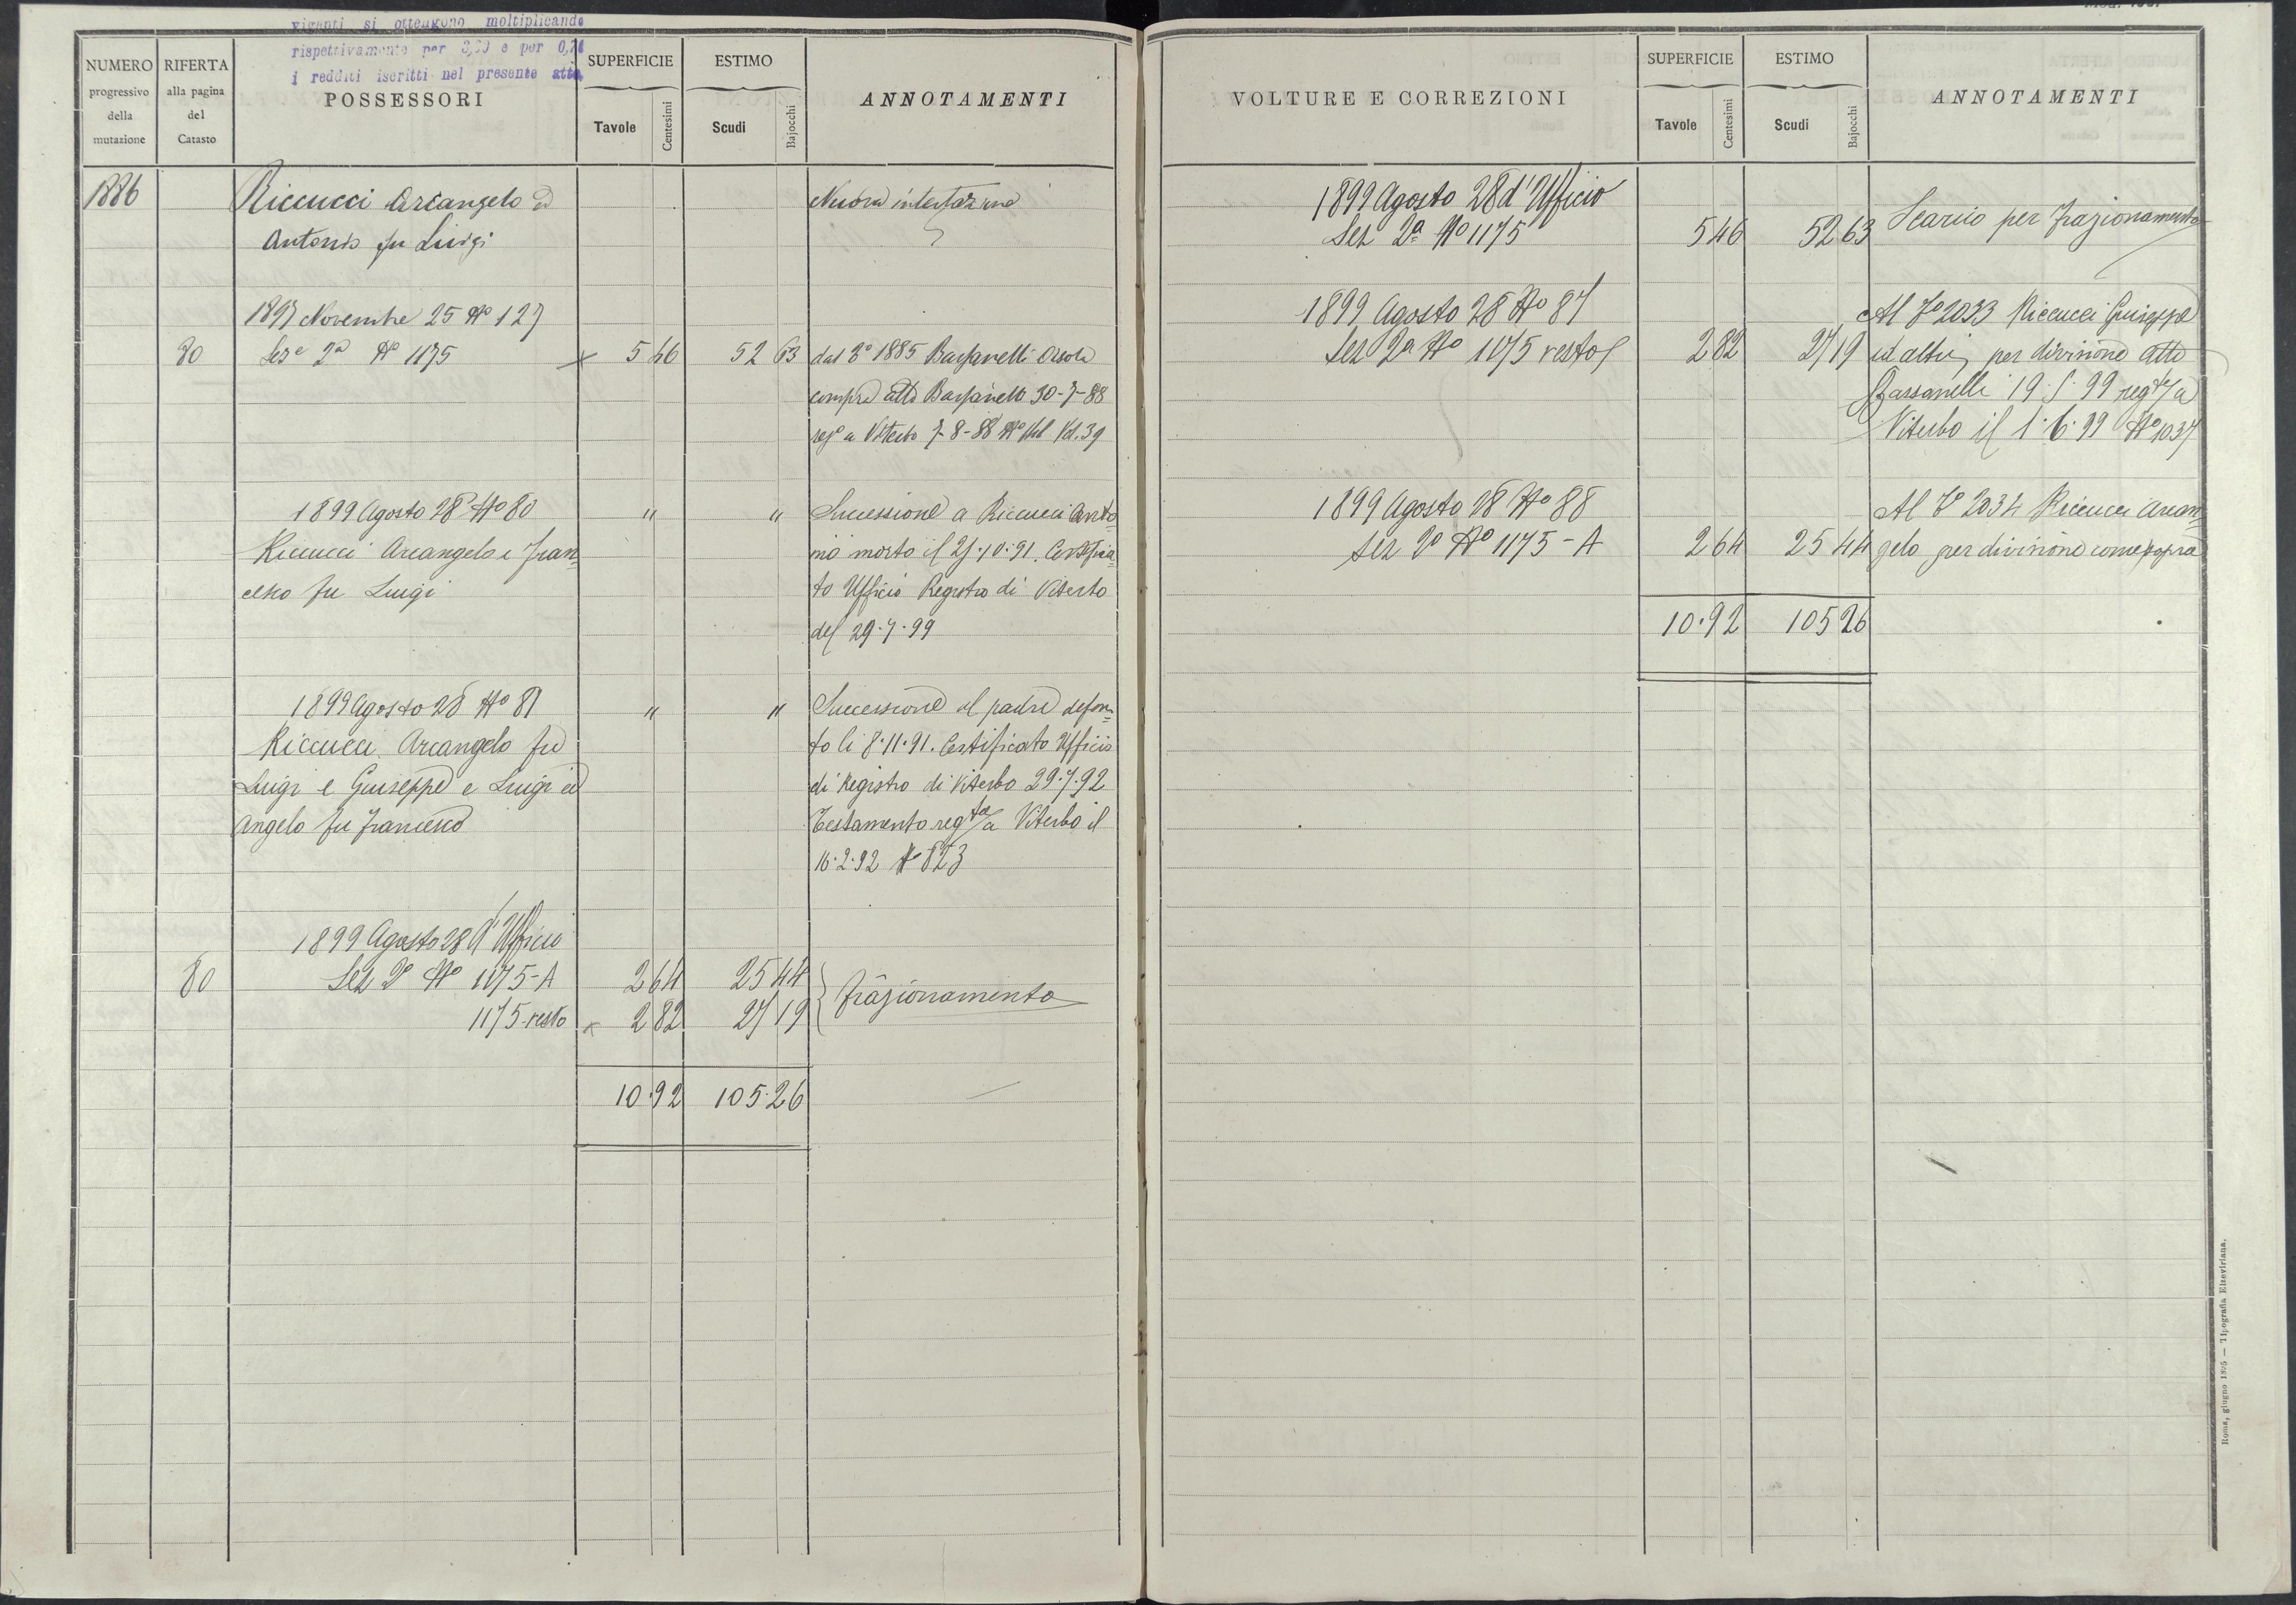 viganti si ottengono moltiplicando
rispettivamente per 3,30 e per 0,74
i redditi iscritti nel presente atto
NUMERO progressivo della mutazione
RIFERTA alla pagina del Catasto
POSSESSORI
SUPERFICIE Tavole Centesimi
ESTIMO Scudi Bajocchi
ANNOTAMENTI
1886 Riccucci Arcangelo ed Nuova intestazione
Antonio fu Luigi
1897 Novembre 25 No 127
80 Seze 2a No 1175 x 5 46 52 63 dal 3o 1885 Bassanelli Orsola
compra atto Bassanelli 30-7-88
rego a Viterbo 7-8-88 No Vol. 39
1899 Agosto 28 No 80 " " Successione a Riccucci Anto=
Riccucci Arcangelo e Fran= nio morto il 27.10.91. Certifica=
cesco fu Luigi to Ufficio Registro di Viterbo
del 29.7.99
1899 Agosto 28 No 81 " " Successione al padre defun=
Riccucci Arcangelo fu to li 8.11.91. Certificato Ufficio
Luigi e Giuseppe e Luigi ed di Registro di Viterbo 29.7.92
Angelo fu Francesco Testamento regto a Viterbo il
16.2.92 No 823
1899 Agosto 28 d'Ufficio
80 Sez 2a No 1175-A 2 64 25 44
1175-resto x 2 82 27 19 } frazionamento
10.92 105.26
VOLTURE E CORREZIONI
SUPERFICIE Tavole Centesimi
ESTIMO Scudi Bajocchi
ANNOTAMENTI
1899 Agosto 28 d'Ufficio
Sez 2a No 1175 5 46 52 63 Scarico per frazionamento
1899 Agosto 28 No 87 Al 3o 2033 Riccucci Giuseppe
Sez 2a No 1175 resto 2 82 27 19 ed altri, per divisione atto
Bassanelli 19.5.99 regto a
Viterbo il 1.6.99 No 1037
1899 Agosto 28 No 88 Al 3o 2034 Riccucci Arcan=
Sez 2a No 1175-A 2 64 25 44 gelo per divisione come sopra
10.92 105 26
Roma, giugno 1895 — Tipografia Elzeviriana.